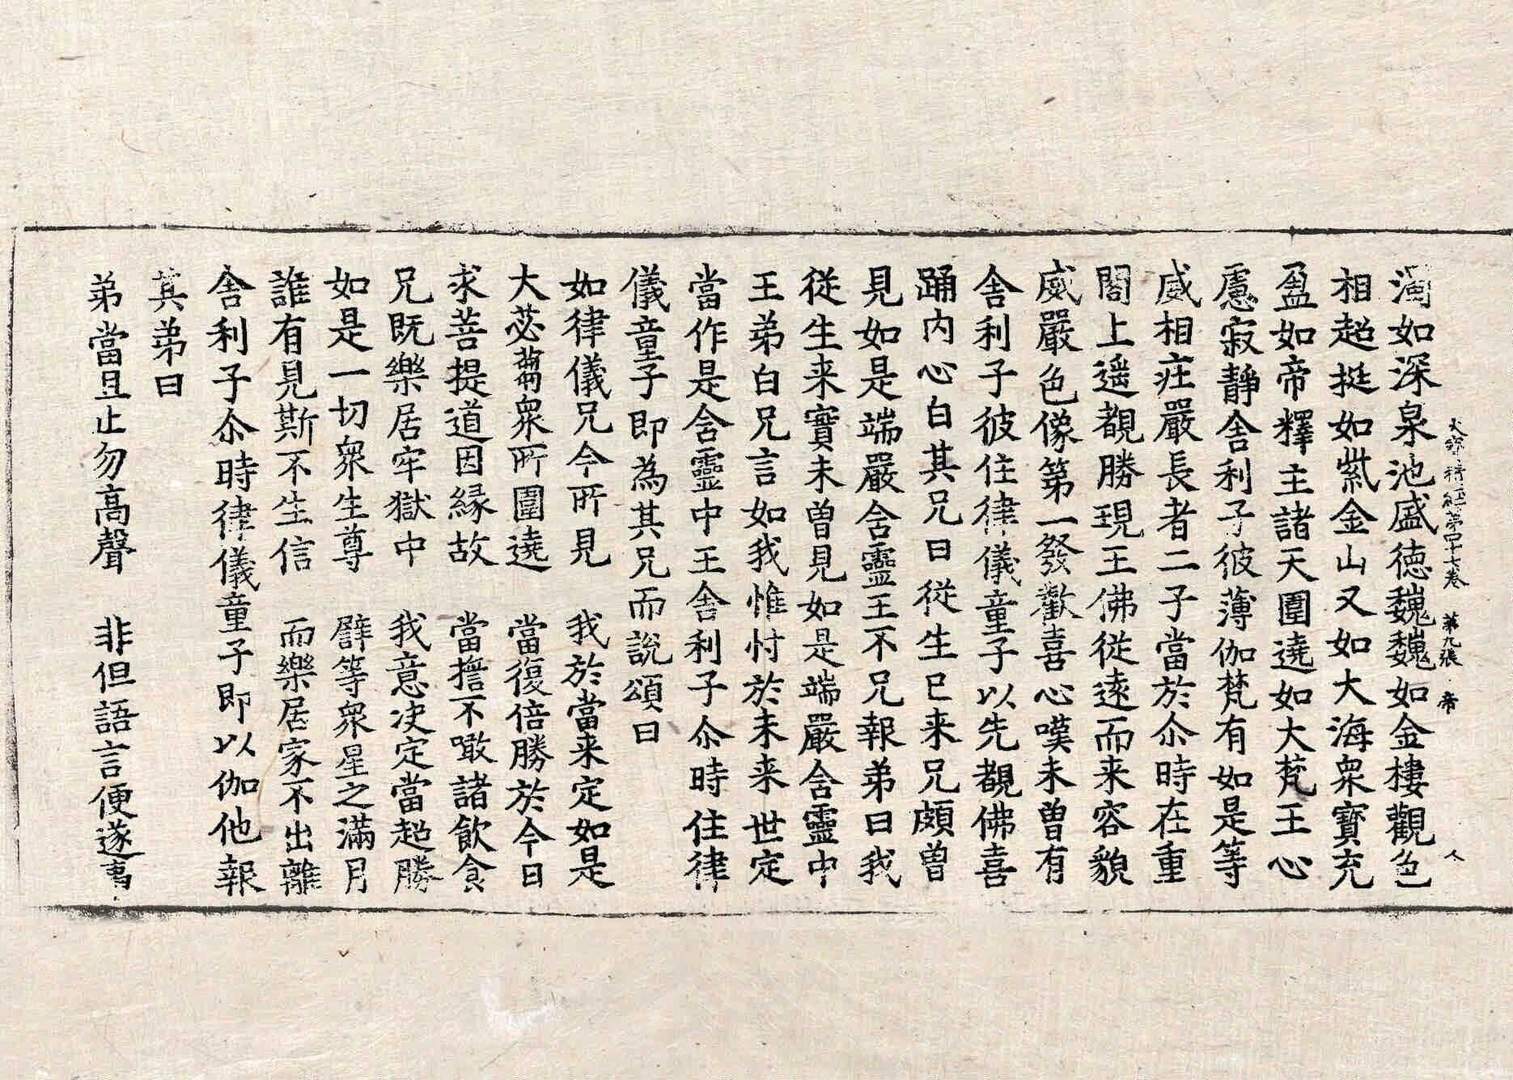 大寶積經第四十七卷　第九張　帝
濁如深泉池盛德巍巍如金樓觀色
相超挺如紫金山又如大海衆寶充
盈如帝釋主諸天圍遶如大梵王心
慮寂靜舍利子彼薄伽梵有如是等
威相莊嚴長者二子當於尒時在重
閣上遥覩勝現王佛從遠而来容貌
威嚴色像第一發歡喜心嘆未曾有
舍利子彼住律儀童子以先覩佛喜
踊内心白其兄曰從生已来兄頗曾
見如是端嚴含靈王不兄報弟曰我
從生来實未曾見如是端嚴含靈中
王弟白兄言如我惟忖於未来世定
當作是含靈中王舍利子尒時住律
儀童子即為其兄而說頌曰
如律儀兄今所見　我於當来定如是
大苾蒭衆所圍遶　當復倍勝於今日
求菩提道因緣故　當擔不噉諸飲食
兄既樂居牢獄中　我意决定當超勝
如是一切衆生尊　譬等衆星之滿月
誰有見斯不生信　而樂居家不出離
舍利子尒時律儀童子即以伽他報
其弟曰
弟當且止勿高聲　非但語言便遂事